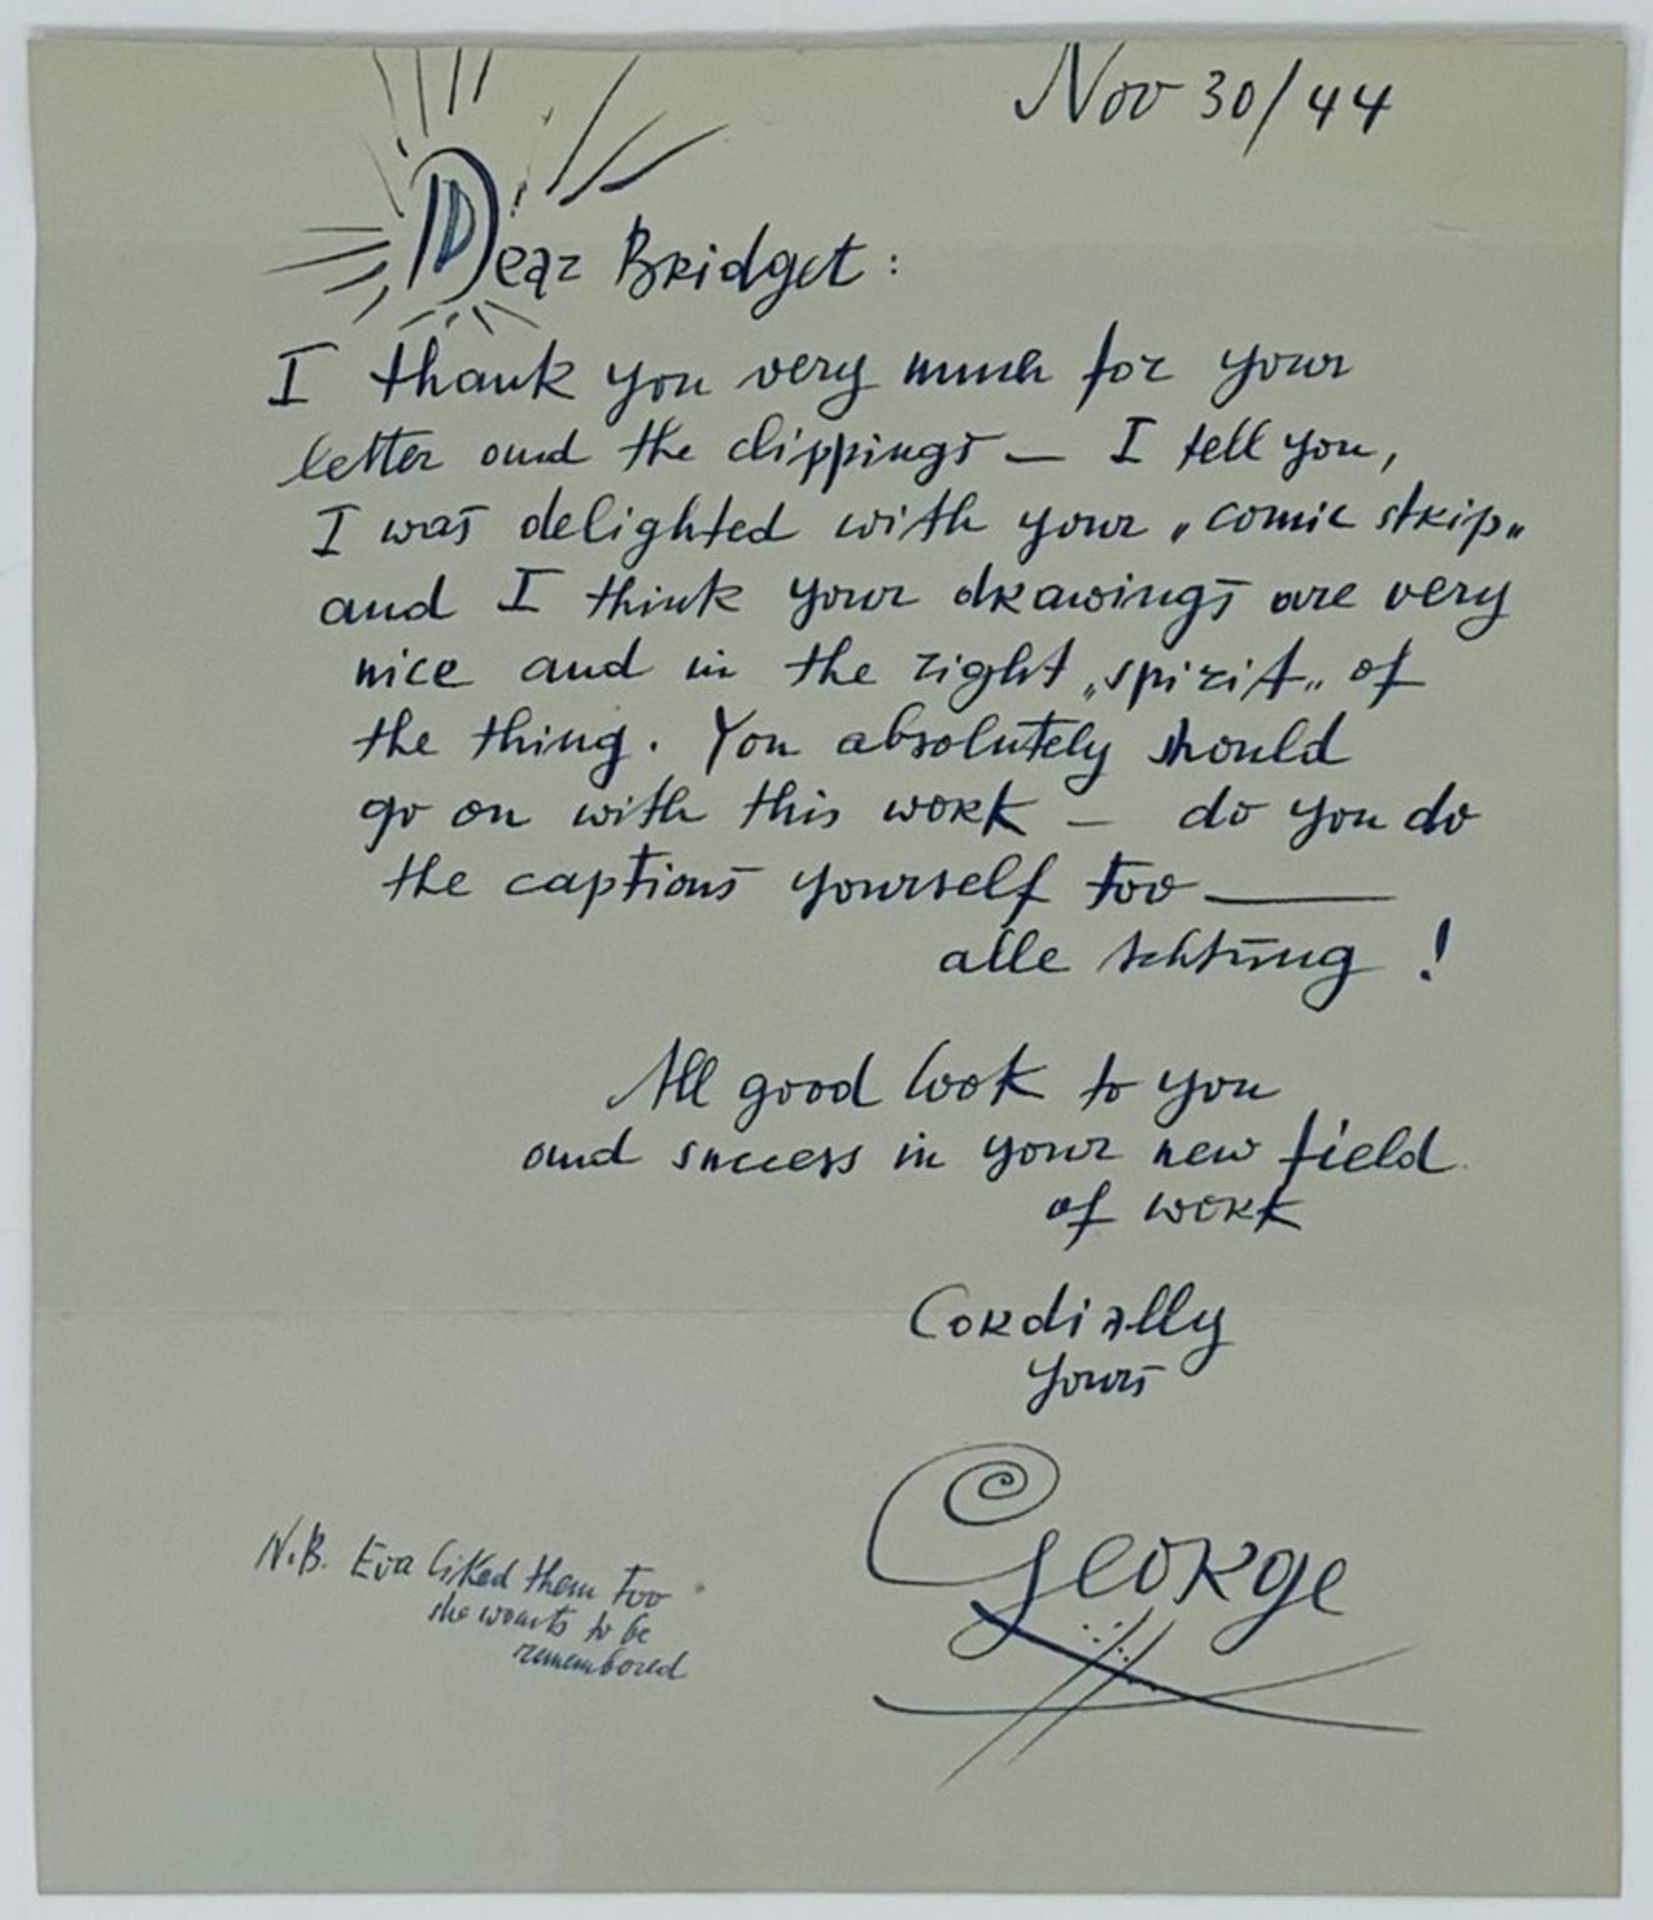 Nov 30/44
Dear Bridget:
I thank you very much for your
letter and the clippings — I tell you,
I was delighted with your „comic strip„
and I think your drawings are very
nice and in the right „spirit„ of
the thing. You absolutely should
go on with this work — do you do
the captions yourself too ——
alle Achtung !
All good look to you
and success in your new field
of work
Cordially
yours
George
N.B. Eva liked them too
she wants to be
remembered